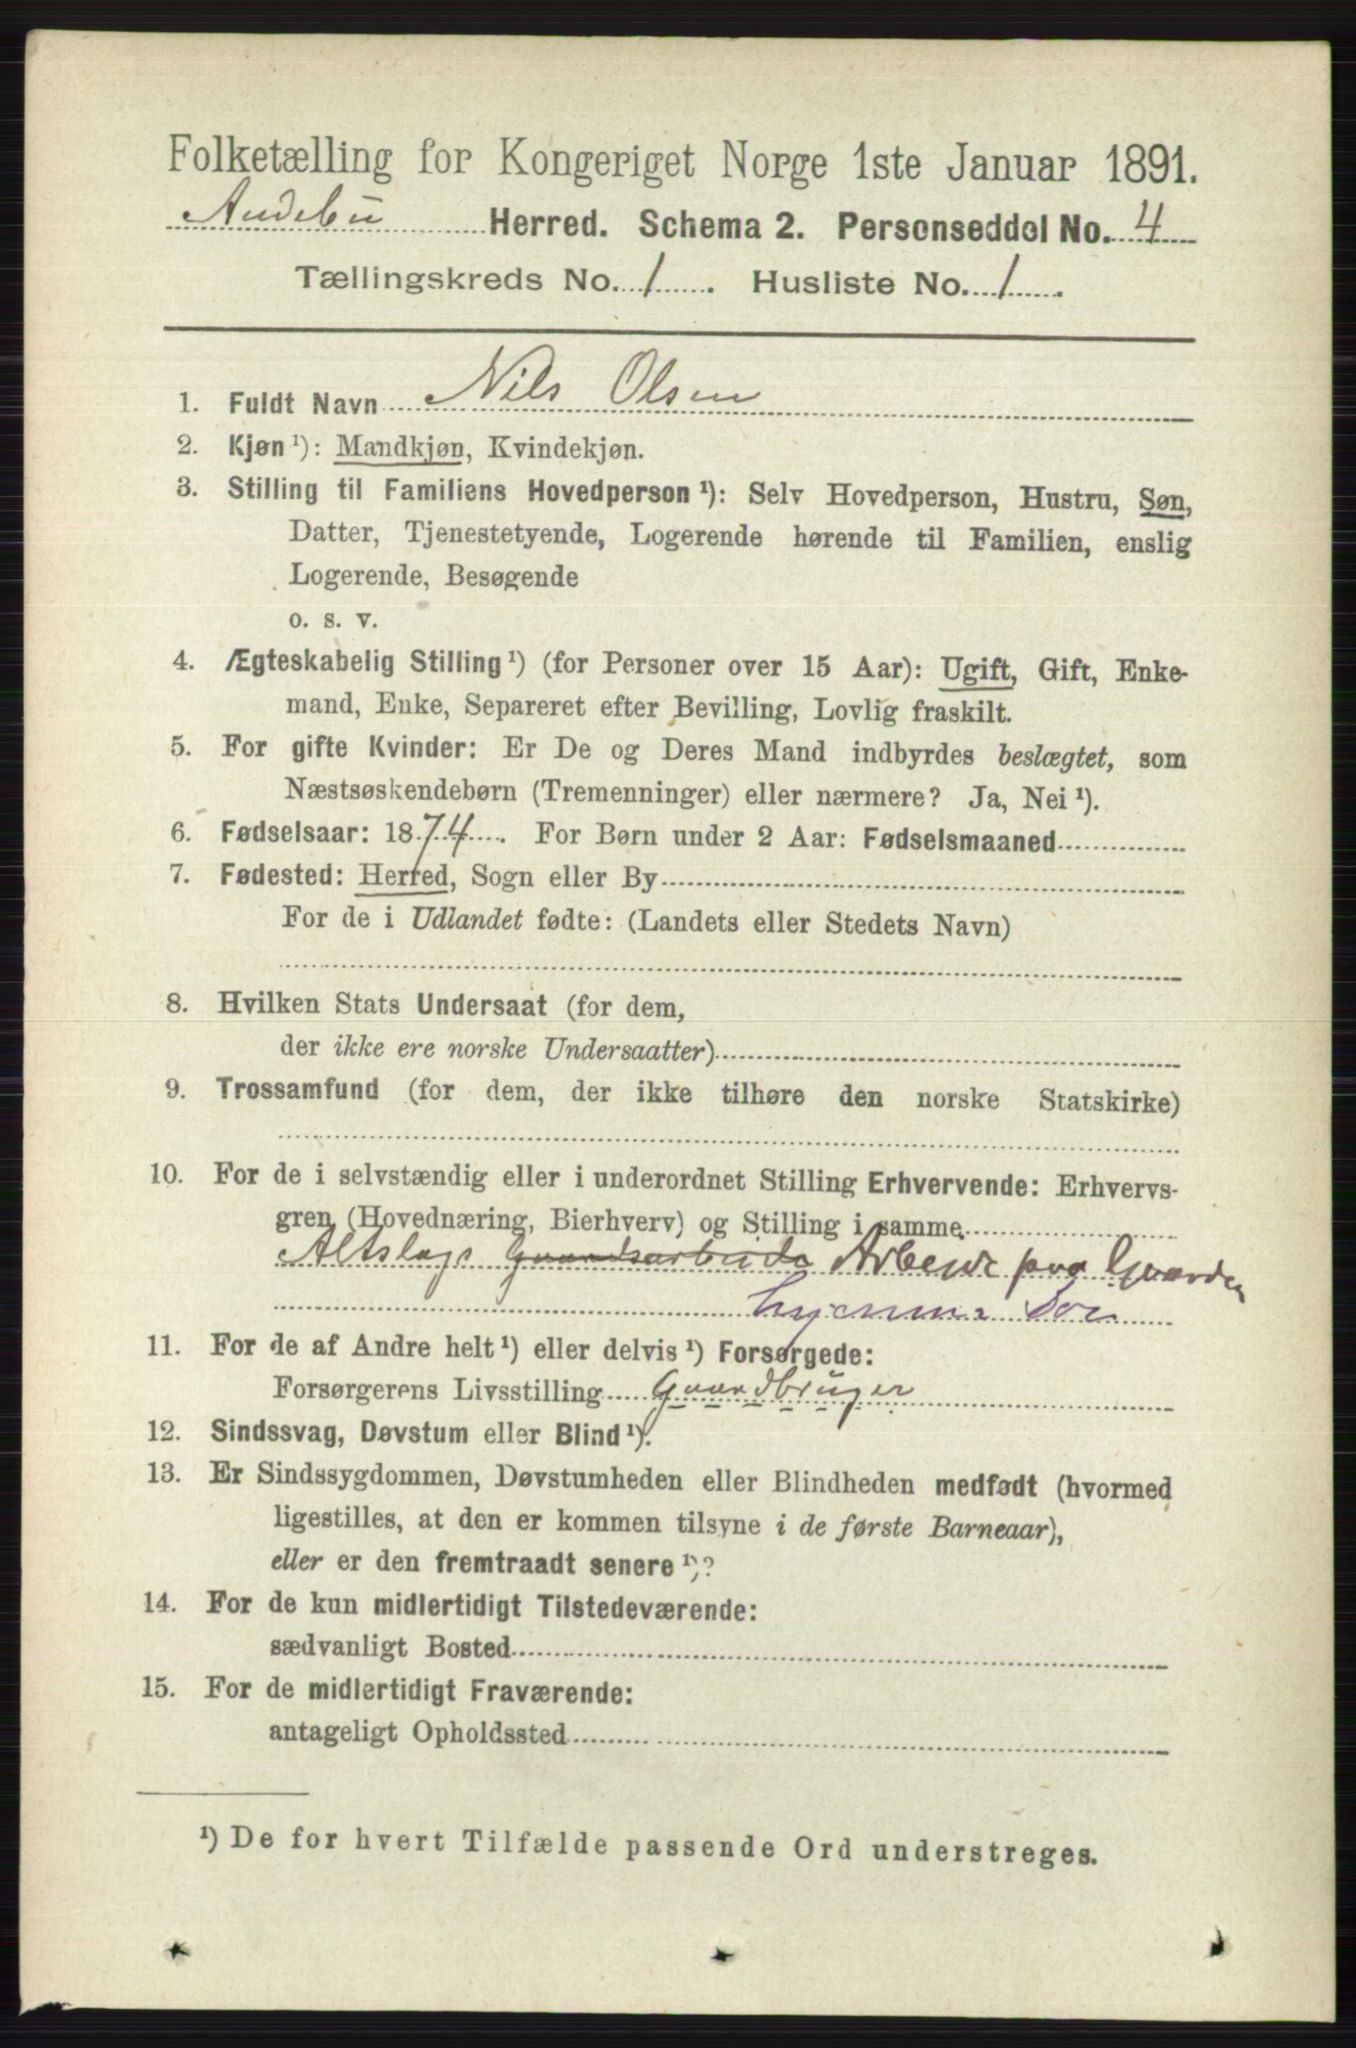 Folketælling for Kongeriget Norge 1ste Januar 1891.
Andebu Herred. Schema 2. Personseddel No. 4
Tællingskreds No. 1. Husliste No. 1.
1. Fuldt Navn Nils Olsen
2. Kjøn ¹): Mandkjøn, Kvindekjøn.
3. Stilling til Familiens Hovedperson ¹): Selv Hovedperson, Hustru, Søn,
Datter, Tjenestetyende, Logerende hørende til Familien, enslig
Logerende, Besøgende
o. s. v.
4. Ægteskabelig Stilling ¹) (for Personer over 15 Aar): Ugift, Gift, Enke-
mand, Enke, Separeret efter Bevilling, Lovlig fraskilt.
5. For gifte Kvinder: Er De og Deres Mand indbyrdes beslægtet, som
Næstsøskendebørn (Tremenninger) eller nærmere? Ja, Nei ¹).
6. Fødselsaar: 1874. For Børn under 2 Aar: Fødselsmaaned
7. Fødested: Herred, Sogn eller By
For de i Udlandet fødte: (Landets eller Stedets Navn)
8. Hvilken Stats Undersaat (for dem,
der ikke ere norske Undersaatter)
9. Trossamfund (for dem, der ikke tilhøre den norske Statskirke)
10. For de i selvstændig eller i underordnet Stilling Erhvervende: Erhvervs-
gren (Hovednæring, Bierhverv) og Stilling i samme
Altslags Gaardsarbeide Arbeide paa Gaarden
hjemme Søn
11. For de af Andre helt ¹) eller delvis ¹) Forsørgede:
Forsørgerens Livsstilling Gaardbruger
12. Sindssvag, Døvstum eller Blind ¹).
13. Er Sindssygdommen, Døvstumheden eller Blindheden medfødt (hvormed
ligestilles, at den er kommen tilsyne i de første Barneaar),
eller er den fremtraadt senere ¹)?
14. For de kun midlertidigt Tilstedeværende:
sædvanligt Bosted
15. For de midlertidigt Fraværende:
antageligt Opholdssted
¹) De for hvert Tilfælde passende Ord understreges.